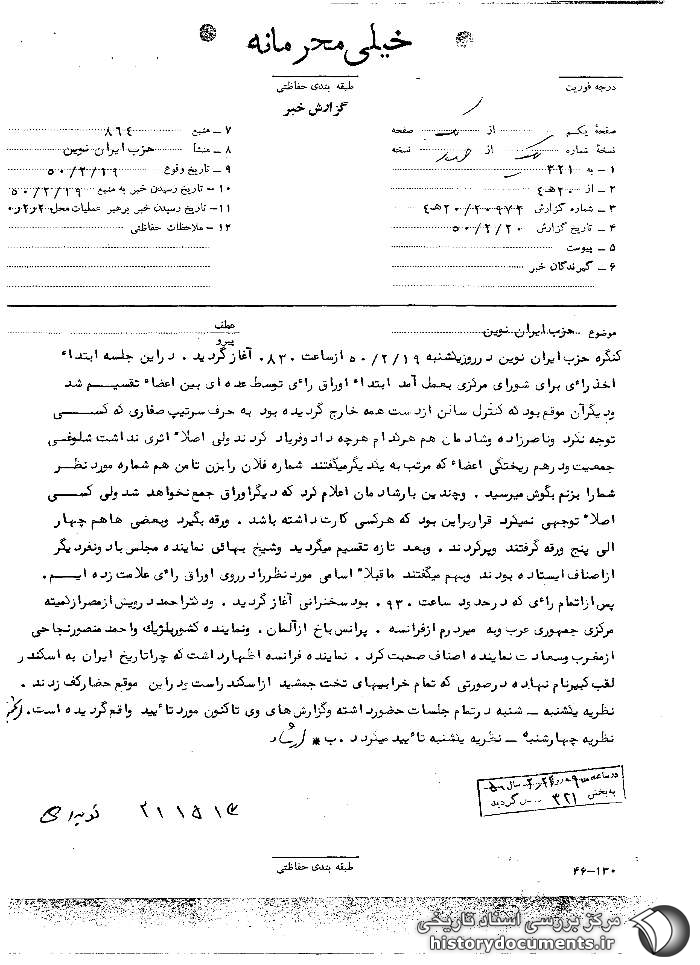 خیلی محرمانه
درجه فوریت
طبقه بندی حفاظتی
گزارش خبر
صفحهٔ یکم از صفحه
نسخهٔ شماره از نسخه
۱ـ به ۳۲۱
۲ـ از ۲۰هـ۴
۳ـ شماره گزارش ۲۰۹۷۳/۲۰هـ۴
۴ـ تاریخ گزارش ۵۰/۲/۲۰
۵ـ پیوست
۶ـ گیرندگان خبر
۷ـ منبع ۸۶۴
۸ـ منشأ حزب ایران نوین
۹ـ تاریخ وقوع ۵۰/۲/۱۹
۱۰ـ تاریخ رسیدن خبر به منبع ۵۰/۲/۱۹
۱۱ـ تاریخ رسیدن خبر برهبر عملیات محل
۱۲ـ ملاحظات حفاظتی
موضوع حزب ایران نوین
عطف
پیرو
کنگره حزب ایران نوین در روز یکشنبه ۵۰/۲/۱۹ از ساعت ۰۸۳۰ آغاز گردید . در این جلسه ابتداء
اخذ رای برای شورای مرکزی بعمل آمد ابتداء اوراق رای توسط عده ای بین اعضاء تقسیم شد
و دیگر آن موقع بود که کنترل سالن از دست همه خارج گردیده بود به حرف سرتیپ صفاری که کسی
توجه نکرد و ناصرزاده و شادمان هم هرکدام هرچه داد و فریاد کردند ولی اصلا" اثری نداشت شلوغی
جمعیت و درهم ریختگی اعضاء که مرتب به یکدیگر میگفتند شماره فلان را بزن تا من هم شماره مورد نظر
شما را بزنم بگوش میرسید . و چندین بار شادمان اعلام کرد که دیگر اوراق جمع نخواهد شد ولی کسی
اصلا" توجهی نمیکرد قرار بر این بود که هر کسی کارت داشته باشد . ورقه بگیرد و بعضی ها هم چهار
الی پنج ورقه گرفتند و پر کردند . و بعد تازه تقسیم میگردید و شیخ بهائی نماینده مجلس با دو نفر دیگر
از اصناف ایستاده بودند و بهم میگفتند ما قبلا" اسامی مورد نظر را در روی اوراق رای علامت زده ایم .
پس از اتمام رای که در حدود ساعت ۹۳۰ بود سخنرانی آغاز گردید . دکتر احمد درویش از مصر از کمیته
مرکزی جمهوری عرب و به میردرم از فرانسه . پرانس باخ از آلمان . و نماینده کشور بلژیک و احمد منصور نجاحی
از مغرب و سعادت نماینده اصناف صحبت کرد . نماینده فرانسه اظهار داشت که چرا تاریخ ایران به اسکندر
لقب کبیر نام نهاده در صورتی که تمام خرابیهای تخت جمشید از اسکندر است و در این موقع حضار کف زدند .
نظریه یکشنبه ـ شنبه در تمام جلسات حضور داشته و گزارش های وی تاکنون مورد تأیید واقع گردیده است.
نظریه چهارشنبه ـ نظریه یکشنبه تأیید میگردد . ب *
به بخش ۳۲۱ گردید
طبقه بندی حفاظتی
۴۶-۱۳۰
مرکز بررسی اسناد تاریخی
historydocuments.ir